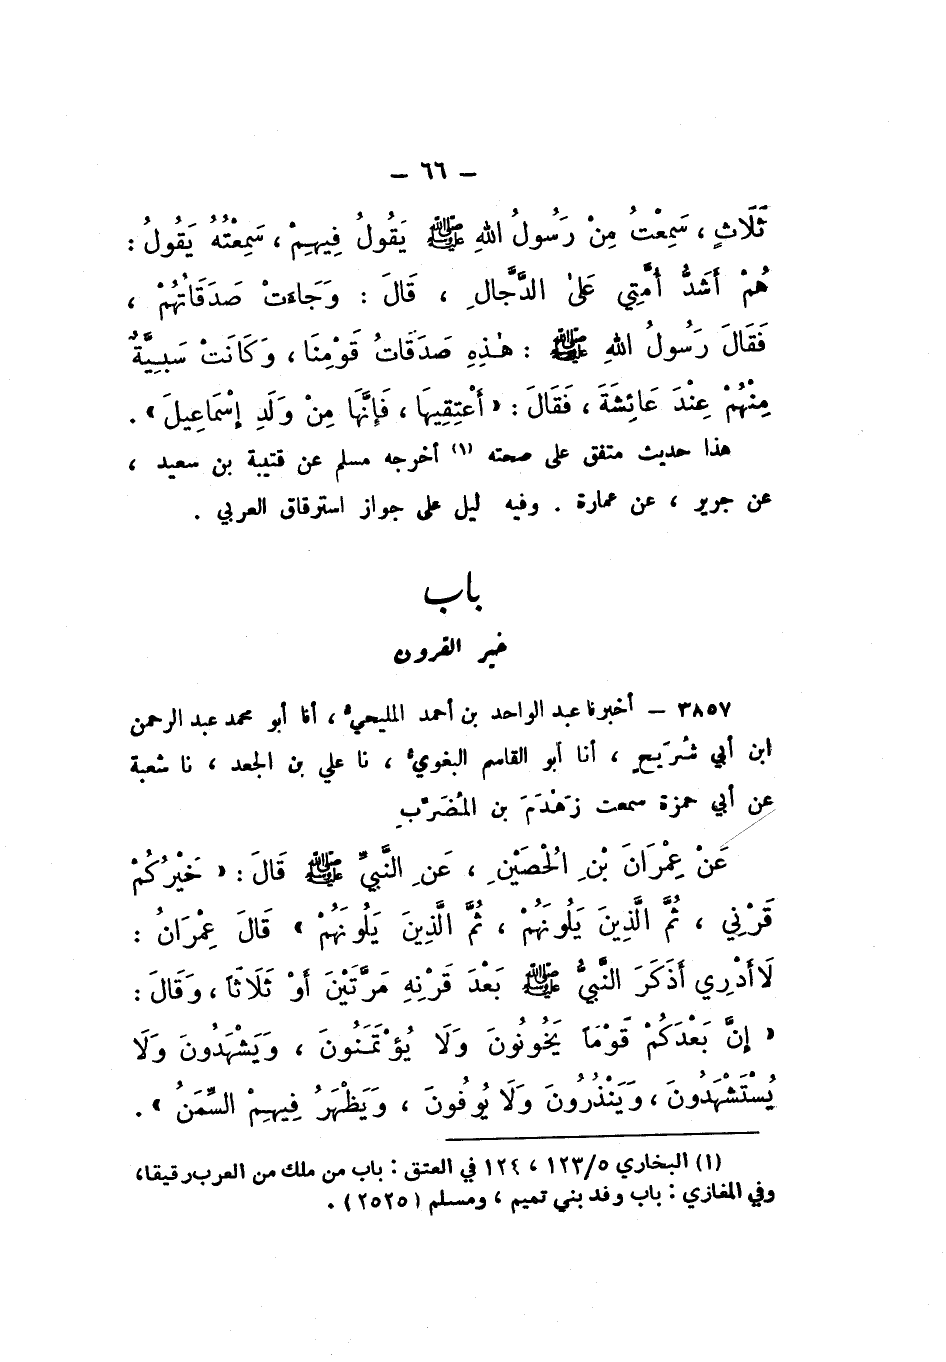 – ٦٦ –
ثَلَاثٍ ، سَمِعْتُ مِنْ رَسُولُ اللهِ ﷺ يَقُولُ فِيهِمْ ، سَمِعْتُهُ يَقُولُ :
هُمْ أَشَدُّ أُمَّتِي عَلَىٰ الدَّجَّالِ ، قَالَ : وَجَاءَتْ صَدَقَاتُهُمْ ،
فَقَالَ رَسُولُ اللهِ ﷺ : هٰذِهِ صَدَقَاتُ قَوْمِنَا ، وَكَانَتْ سَبِيَّةٌ
مِنْهُمْ عِنْدَ عَائِشَةَ ، فَقَالَ : « أَعْتِقِيهَا ، فَإِنَّهَا مِنْ وَلَدِ إِسْمَاعِيلَ » .
هذا حديث متفق على صحته (١) أخرجه مسلم عن قتيبة بن سعيد ،
عن جرير ، عن عمارة . وفيه ليل على جواز استرقاق العربي .
باب
خير القرون
٣٨٥٧ – أخبرنا عبد الواحد بن أحمد المليحيُّ ، أنا أبو محمد عبد الرحمن
ابن أبي شُرَيحٍ ، أنا أبو القاسم البغويُّ ، نا علي بن الجعد ، نا شعبة
عن أبي حمزة سمعت زَهْدَمَ بن المُضَرّبِ
عَنْ عِمْرَانَ بْنِ الْحُصَيْنِ ، عَنِ النَّبِيِّ ﷺ قَالَ : « خَيْرُكُمْ
قَرْنِي ، ثُمَّ الَّذِينَ يَلُونَهُمْ ، ثُمَّ الَّذِينَ يَلُونَهُمْ » قَالَ عِمْرَانُ :
لَا أَدْرِي أَذَكَرَ النَّبِيُّ ﷺ بَعْدَ قَرْنِهِ مَرَّتَيْنَ أَوْ ثَلَاثَاً ، وَقَالَ :
« إِنَّ بَعْدَكُمْ قَوْمَاً يَخُونُونَ وَلَا يُؤْتَمَنُونَ ، وَيَشْهَدُونَ وَلَا
يُسْتَشْهَدُونَ ، وَيَنْذُرُونَ وَلَا يُوفُونَ ، وَيَظْهَرُ فِيهِمْ السِّمَنُ » .
(١) البخاري ١٢٣/٥ ، ١٢٤ في العتق : باب من ملك من العرب رقيقا ،
وفي المغازي : باب وفد بني تميم ، ومسلم (٢٥٢٥) .